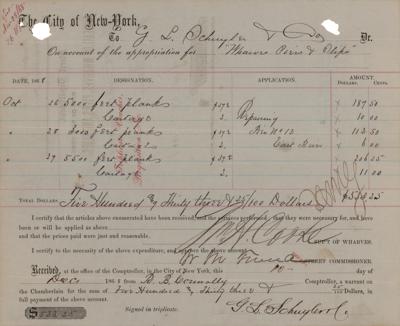 The City of New-York,
To G. L. Schuyler & Co Dr.
On account of the appropriation for "Wharves Piers & Slips"
DATE, 1868 DESIGNATION. APPLICATION. AMOUNT
DOLLARS. CENTS.
Oct 26 5000 feet planks 187.50
Cartage 2. Repairing 10.00
" 28 3000 feet planks Pier No 12 112.50
Cartage 2. East River 6.00
" 29 5500 feet planks 206.25
Cartage 2 11.00
TOTAL DOLLARS Five Hundred & Thirty three & 25/100 Dollars $533.25
I certify that the articles above enumerated have been received, and the services performed, and they were necessary for, and have
been or will be applied above
and that the prices were just and reasonable.
SUPT. OF WHARVES.
I certify to the necessity of the above expenditure, and
STREET COMMISSIONER.
Received, at the office of the Comptroller, in the City of New York, this day of
Dec 1868 from R. B. Connolly Comptroller, a warrant on
the Chamberlain for the sum of Five Hundred & Thirty three & Dollars, in
full payment of the above account.
$533.25 Signed in triplicate. G. L. Schuyler & Co.